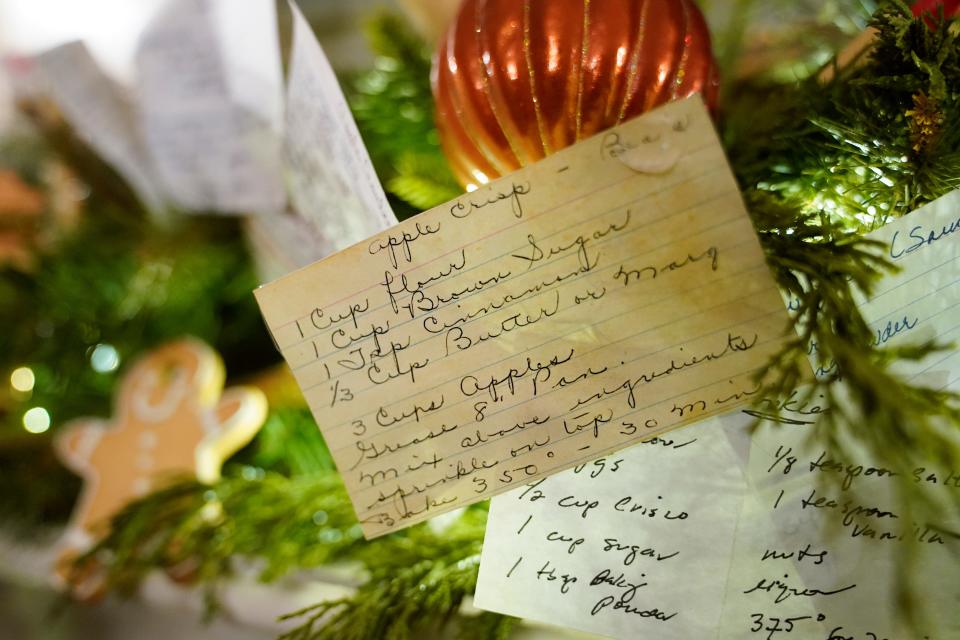 apple Crisp -
1 Cup flour
1 Cup Brown Sugar
1 Tsp Cinnamon
1/3 Cup Butter or Marg
3 Cups apples
Grease 8" Pan.
mix above ingredients
sprinkle on top
Bake 350° - 30 min
1/2 cup Crisco
1 cup sugar
1 tsp Bakig
Powder
1/8 teaspoon salt
1 teaspoon
vanilla
nuts
375°